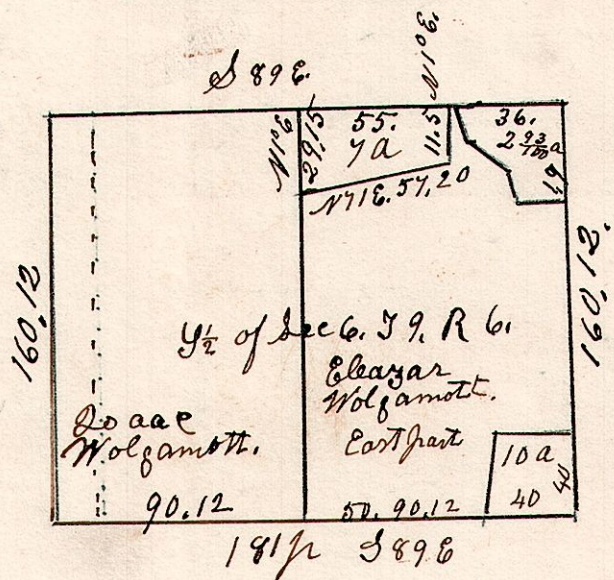 S 89 E.
N 1° E.
N 1° E
29,15
55.
7 a
11.5
N 71 E. 57,20
36.
2 93/100 a
19
160,12
160,12.
½ of Sec 6. T 9. R 6.
Isaac
Wolgamott.
Eleazar
Wolgamott.
East part
10 a
40
40
90.12
50. 90.12
181 p S 89 E